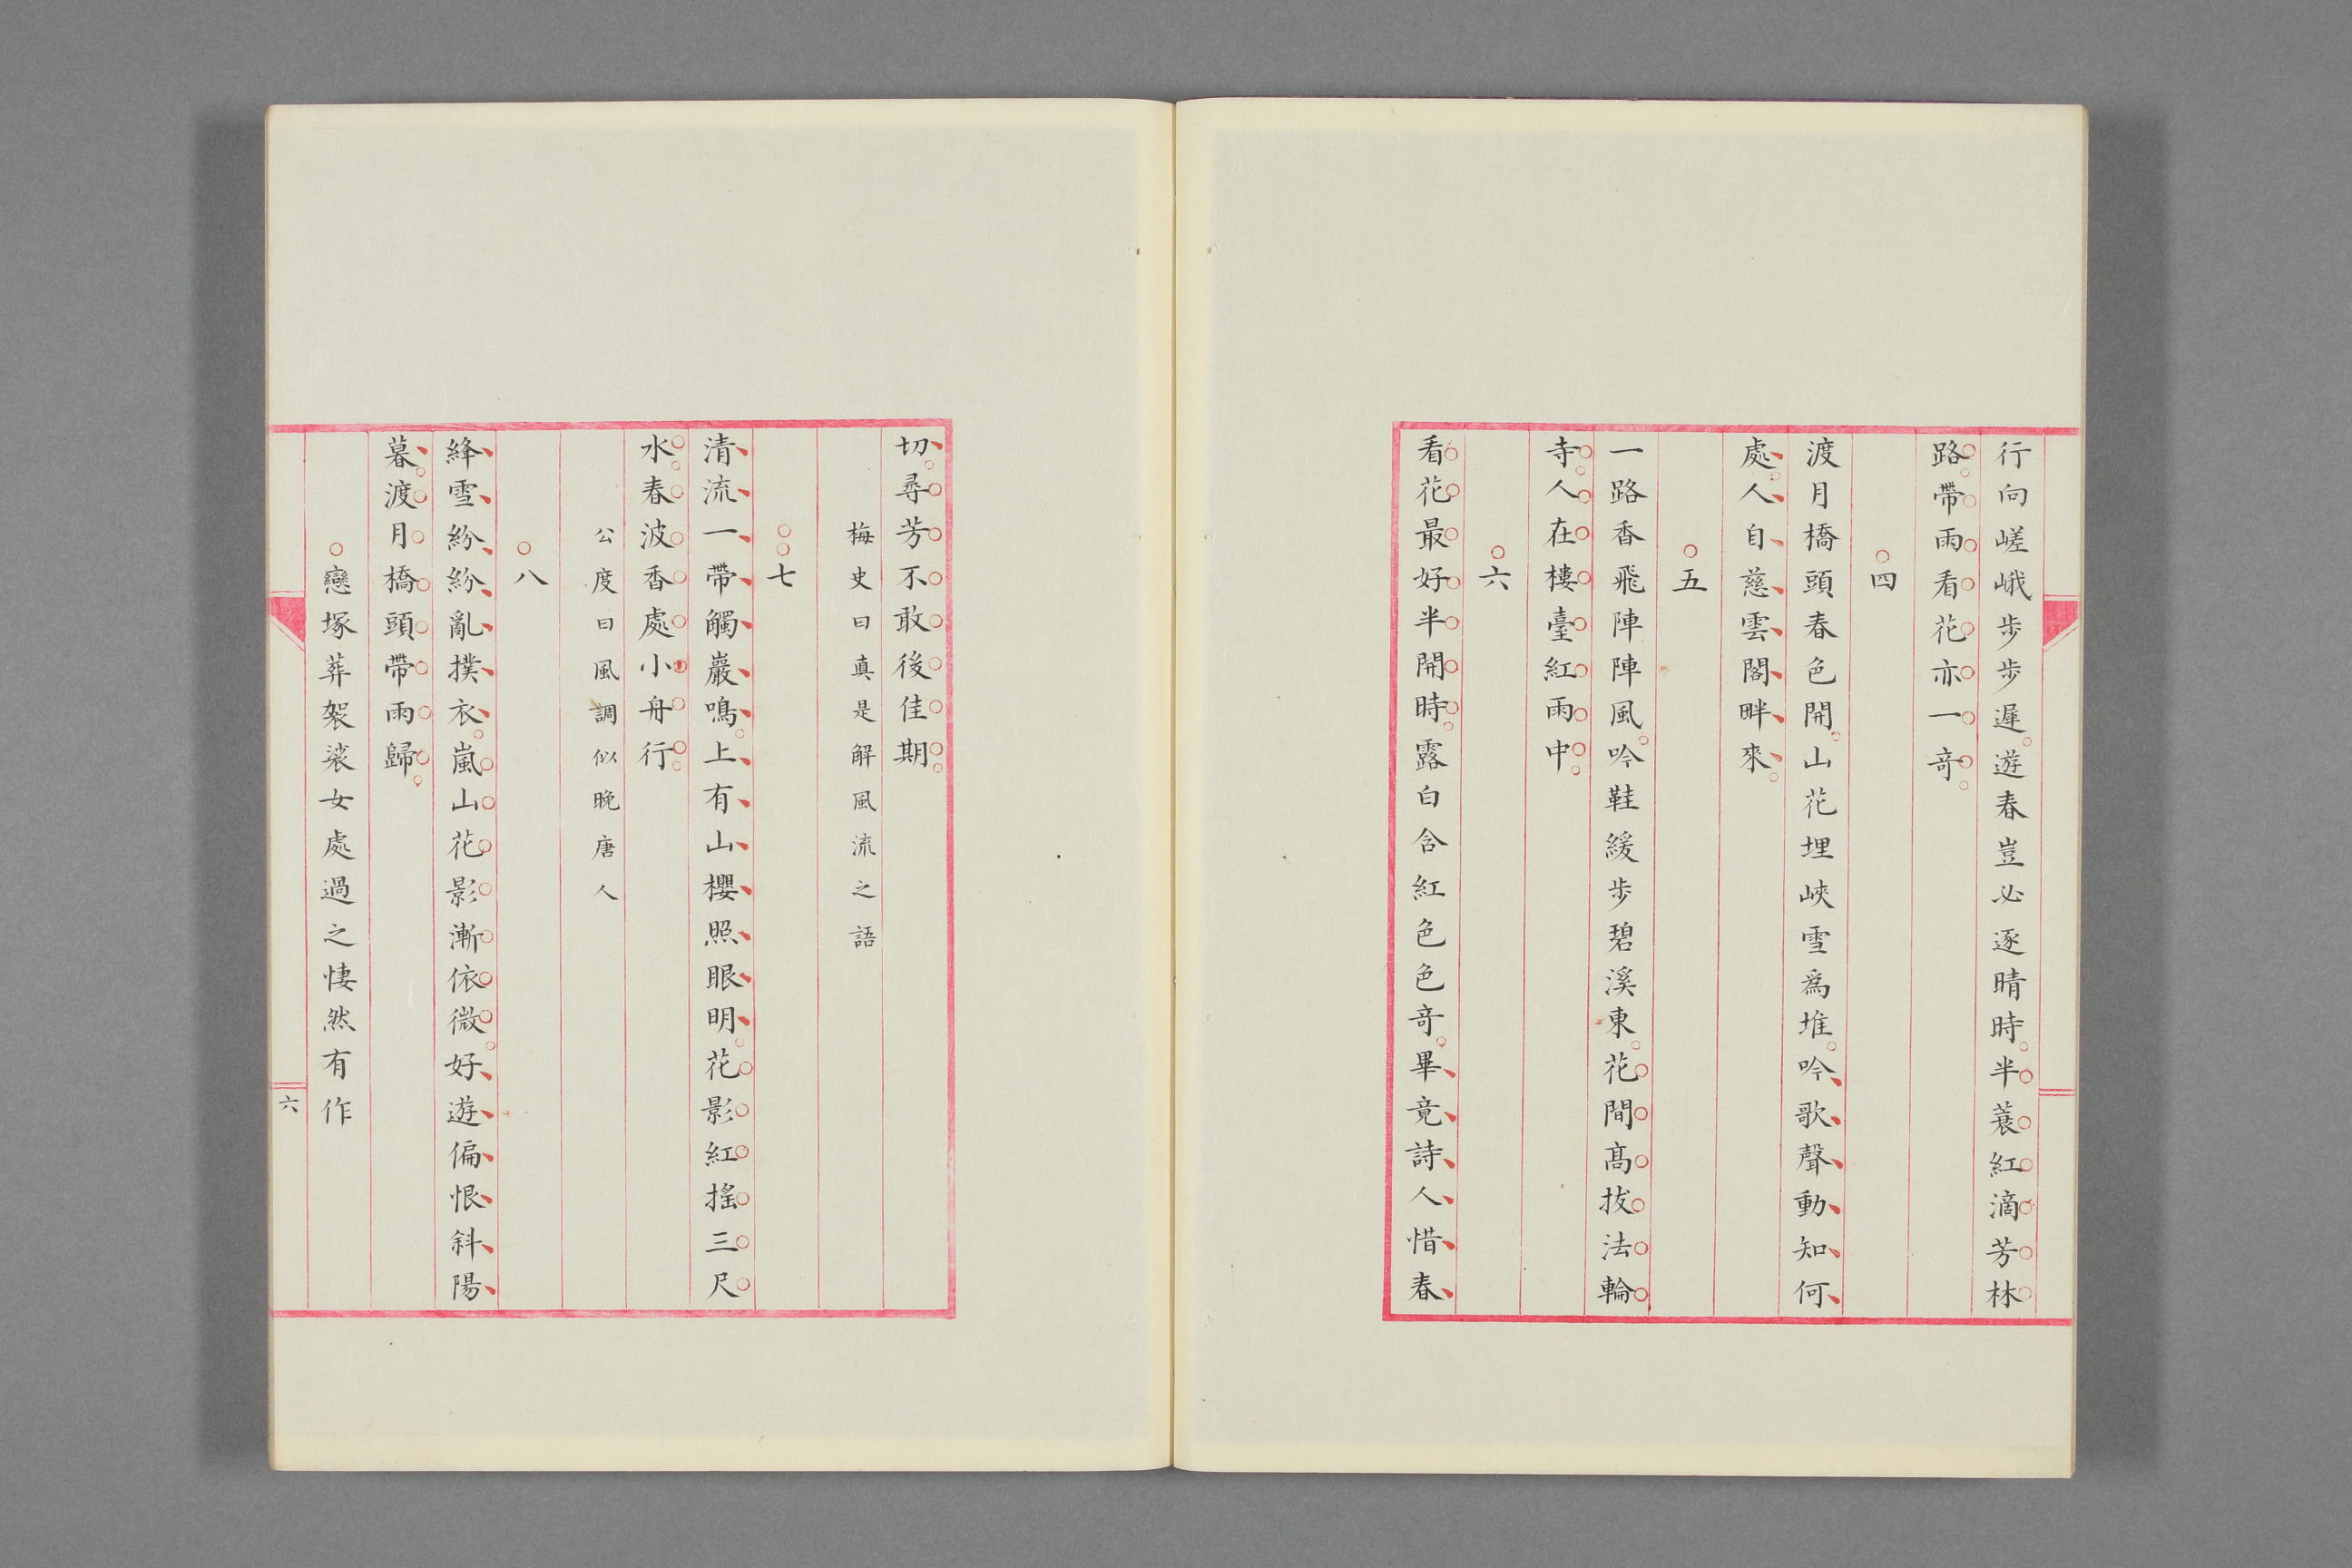 行向嵯峨歩歩遲遊春豈必逐晴時半蓑紅滴芳林
路帶雨看花亦一竒
四
渡月橋頭春色開山花埋峽雪爲堆吟歌聲動知何
處人自慈雲閣畔來
五
一路香飛陣陣風吟鞋緩歩碧溪東花間髙拔法輪
寺人在樓臺紅雨中
六
看花最好半開時露白含紅色色竒畢竟詩人惜春
切尋芳不敢後佳期
梅史曰真是解風流之語
七
清流一帶觸巖鳴上有山櫻照眼明花影紅搖三尺
水春波香處小舟行
公度曰風調似晚唐人
八
絳雪紛紛亂撲衣嵐山花影漸依微好遊偏恨斜陽
暮渡月橋頭帶雨歸
戀塚葬袈裟女處過之悽然有作
六